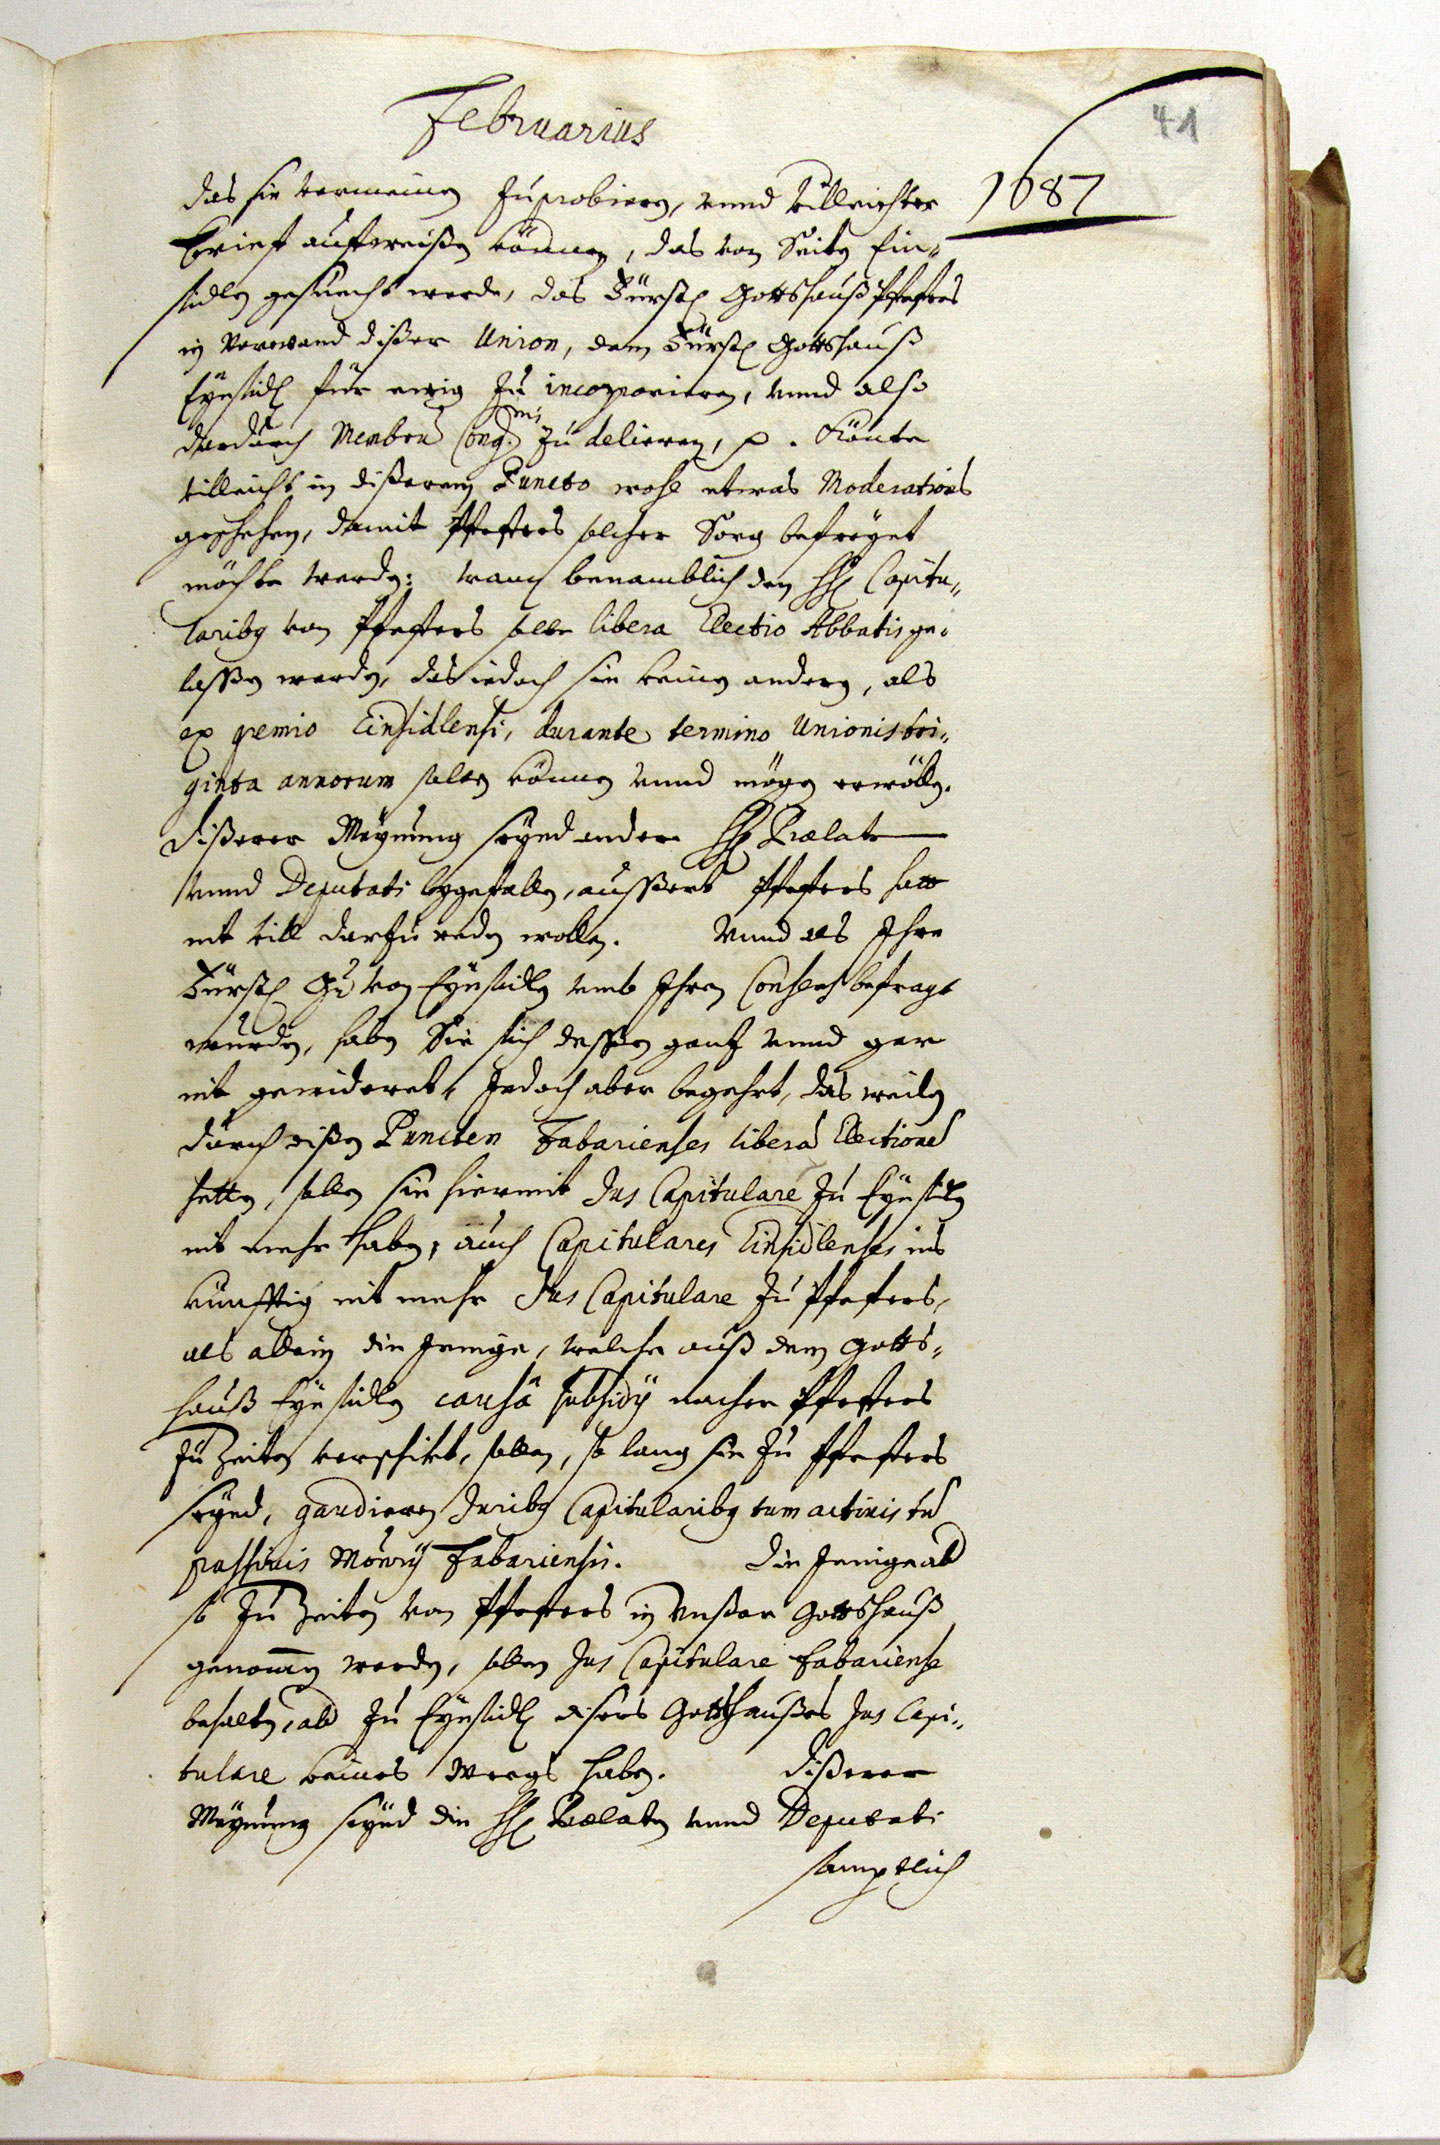 Februarius
41
1687
das sie vermeinen zuprobieren, vnnd villeichter
brieff auffweißen können, das von Seiten Ein-
sidlen gesuecht werde, das Fürstl Gottshauß Pfefers
in Vorwand dißer Union, dem Fürstl Gottshauß
Eynsidl für ewig zu incorporieren, vnnd also
dardurch Membru Cong.nis zu delieren, p. Könte
villeicht in dißerem Puncto wohl etwas Moderations
geschehen, damit Pfefers solcher Sorg befreyet
möchte werden: wann benamblich den HH Capitu-
laribq von Pfefers solle libera Electio Abbatis ge-
lassen werden, das iedoch sie keinen andern, als
ex gemio Einsidlensi, durante termino Unionis tri-
ginta annorum sollen können vnnd mögen erwöllen.
Dißerer Meynung seynd andere HH Prælate
vnnd Deputati beygefallen, aussert Pfefers hatt
nit vill darzu reden wollen. Vnnd als Ihre
Fürstl Gd von Eynsidlen vmb Ihren Consens befragt
wurden, haben Sie sich dessen gantz vnnd gar
nit gewideret, Jedoch aber begehrt, das weilen
durch dißen Puncten Fabarienses libera Electione
hetten, sollen sie hiermit Jus Capitulare zu Eynsidlen
nit mehr haben, auch Capitulares Einsidlenses ins
künfftig nit mehr Jus Capitulare zu Pfefers,
als allein die Jenige, welche auß dem Gotts-
hauß Eynsidlen causâ subsidÿ nacher Pfefers
zu Zeiten verschikt, sollen, so lang sie zu Pfefers
seynd, gaudieren Juribq Capitularibq tum activis tu
passivis Monrÿ Fabariensis. Die Jenige ab
so zu Zeiten von Pfefers in vnßer Gottshauß
genomen werden, sollen Jus Capitulare Fabariense
behalten, ab zu Eynsidl disers Gottshaußes Jus Capi-
tulare keines weegs haben. Dißerer
Meynung seynd die HH Prælaten vnnd Deputati
samptlich